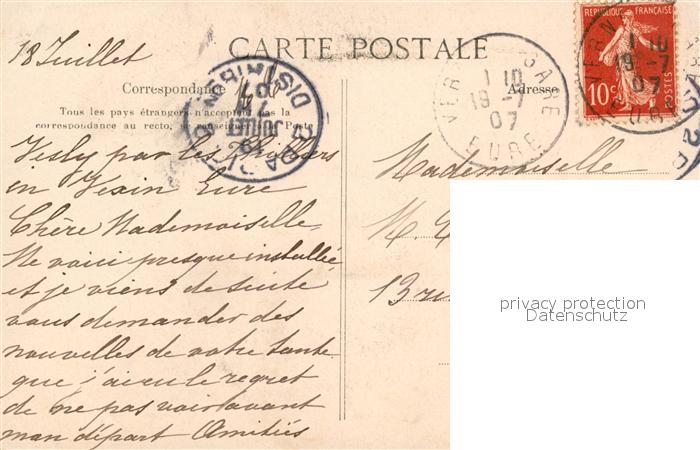 18 Juillet
CARTE POSTALE
REPUBLIQUE FRANÇAISE
10c
POSTES
Correspondance
Adresse
Tous les pays étrangers n'acceptent pas la
correspondance au recto, se renseigner à la Poste
VER GARE
1 10
19 -7
07
EURE
VERN
1 10
19 -7
07
EURE
PARIS
DISTRIB
Vesly par les Thilliers
en Vexin Eure
Chère Mademoiselle,
Me voici presque installée
et je viens de suite
vous demander des
nouvelles de votre tante
que j'ai eu le regret
de ne pas voir avant
mon départ Amitiés
Mademoiselle
M.
13 ru
privacy protection
Datenschutz